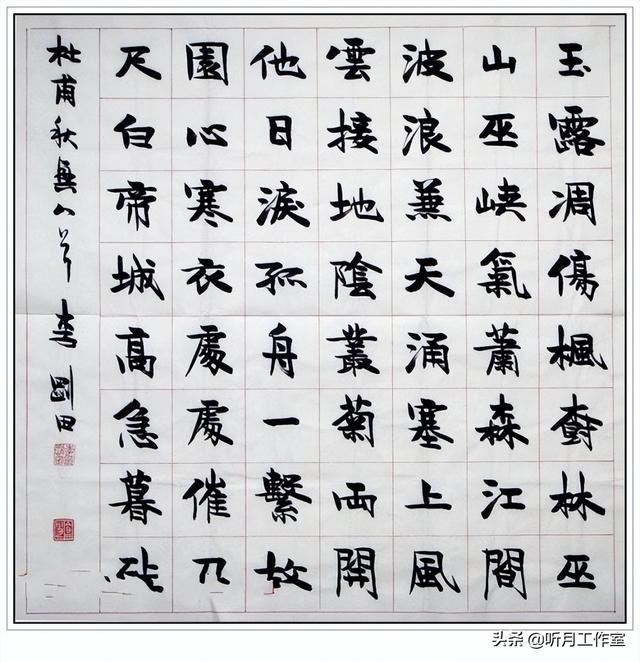 玉露凋傷楓樹林巫
山巫峽氣蕭森江間
波浪兼天涌塞上風
雲接地陰叢菊兩開
他日淚孤舟一繫故
園心寒衣處處催刀
尺白帝城高急暮砧
杜甫秋興八首 李剛田
头条 @听月工作室